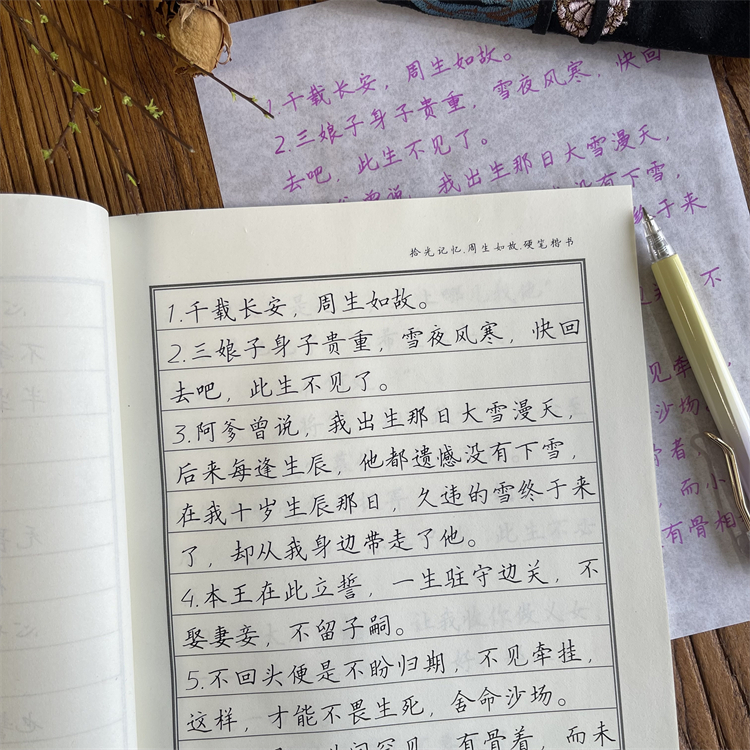 1.千载长安，周生如故。
2.三娘子身子贵重，雪夜风寒，快回
去吧，此生不见了。
我出生那日大雪漫天，
没有下雪，
终于来
不
见牵
沙场。
者，
而小
有骨相
拾光记忆.周生如故.硬笔楷书
1.千载长安，周生如故。
2.三娘子身子贵重，雪夜风寒，快回
去吧，此生不见了。
3.阿爹曾说，我出生那日大雪漫天，
后来每逢生辰，他都遗憾没有下雪，
在我十岁生辰那日，久违的雪终于来
了，却从我身边带走了他。
4.本王在此立誓，一生驻守边关，不
娶妻妾，不留子嗣。
5.不回头便是不盼归期，不见牵挂，
这样，才能不畏生死，舍命沙场。
有骨着，而未